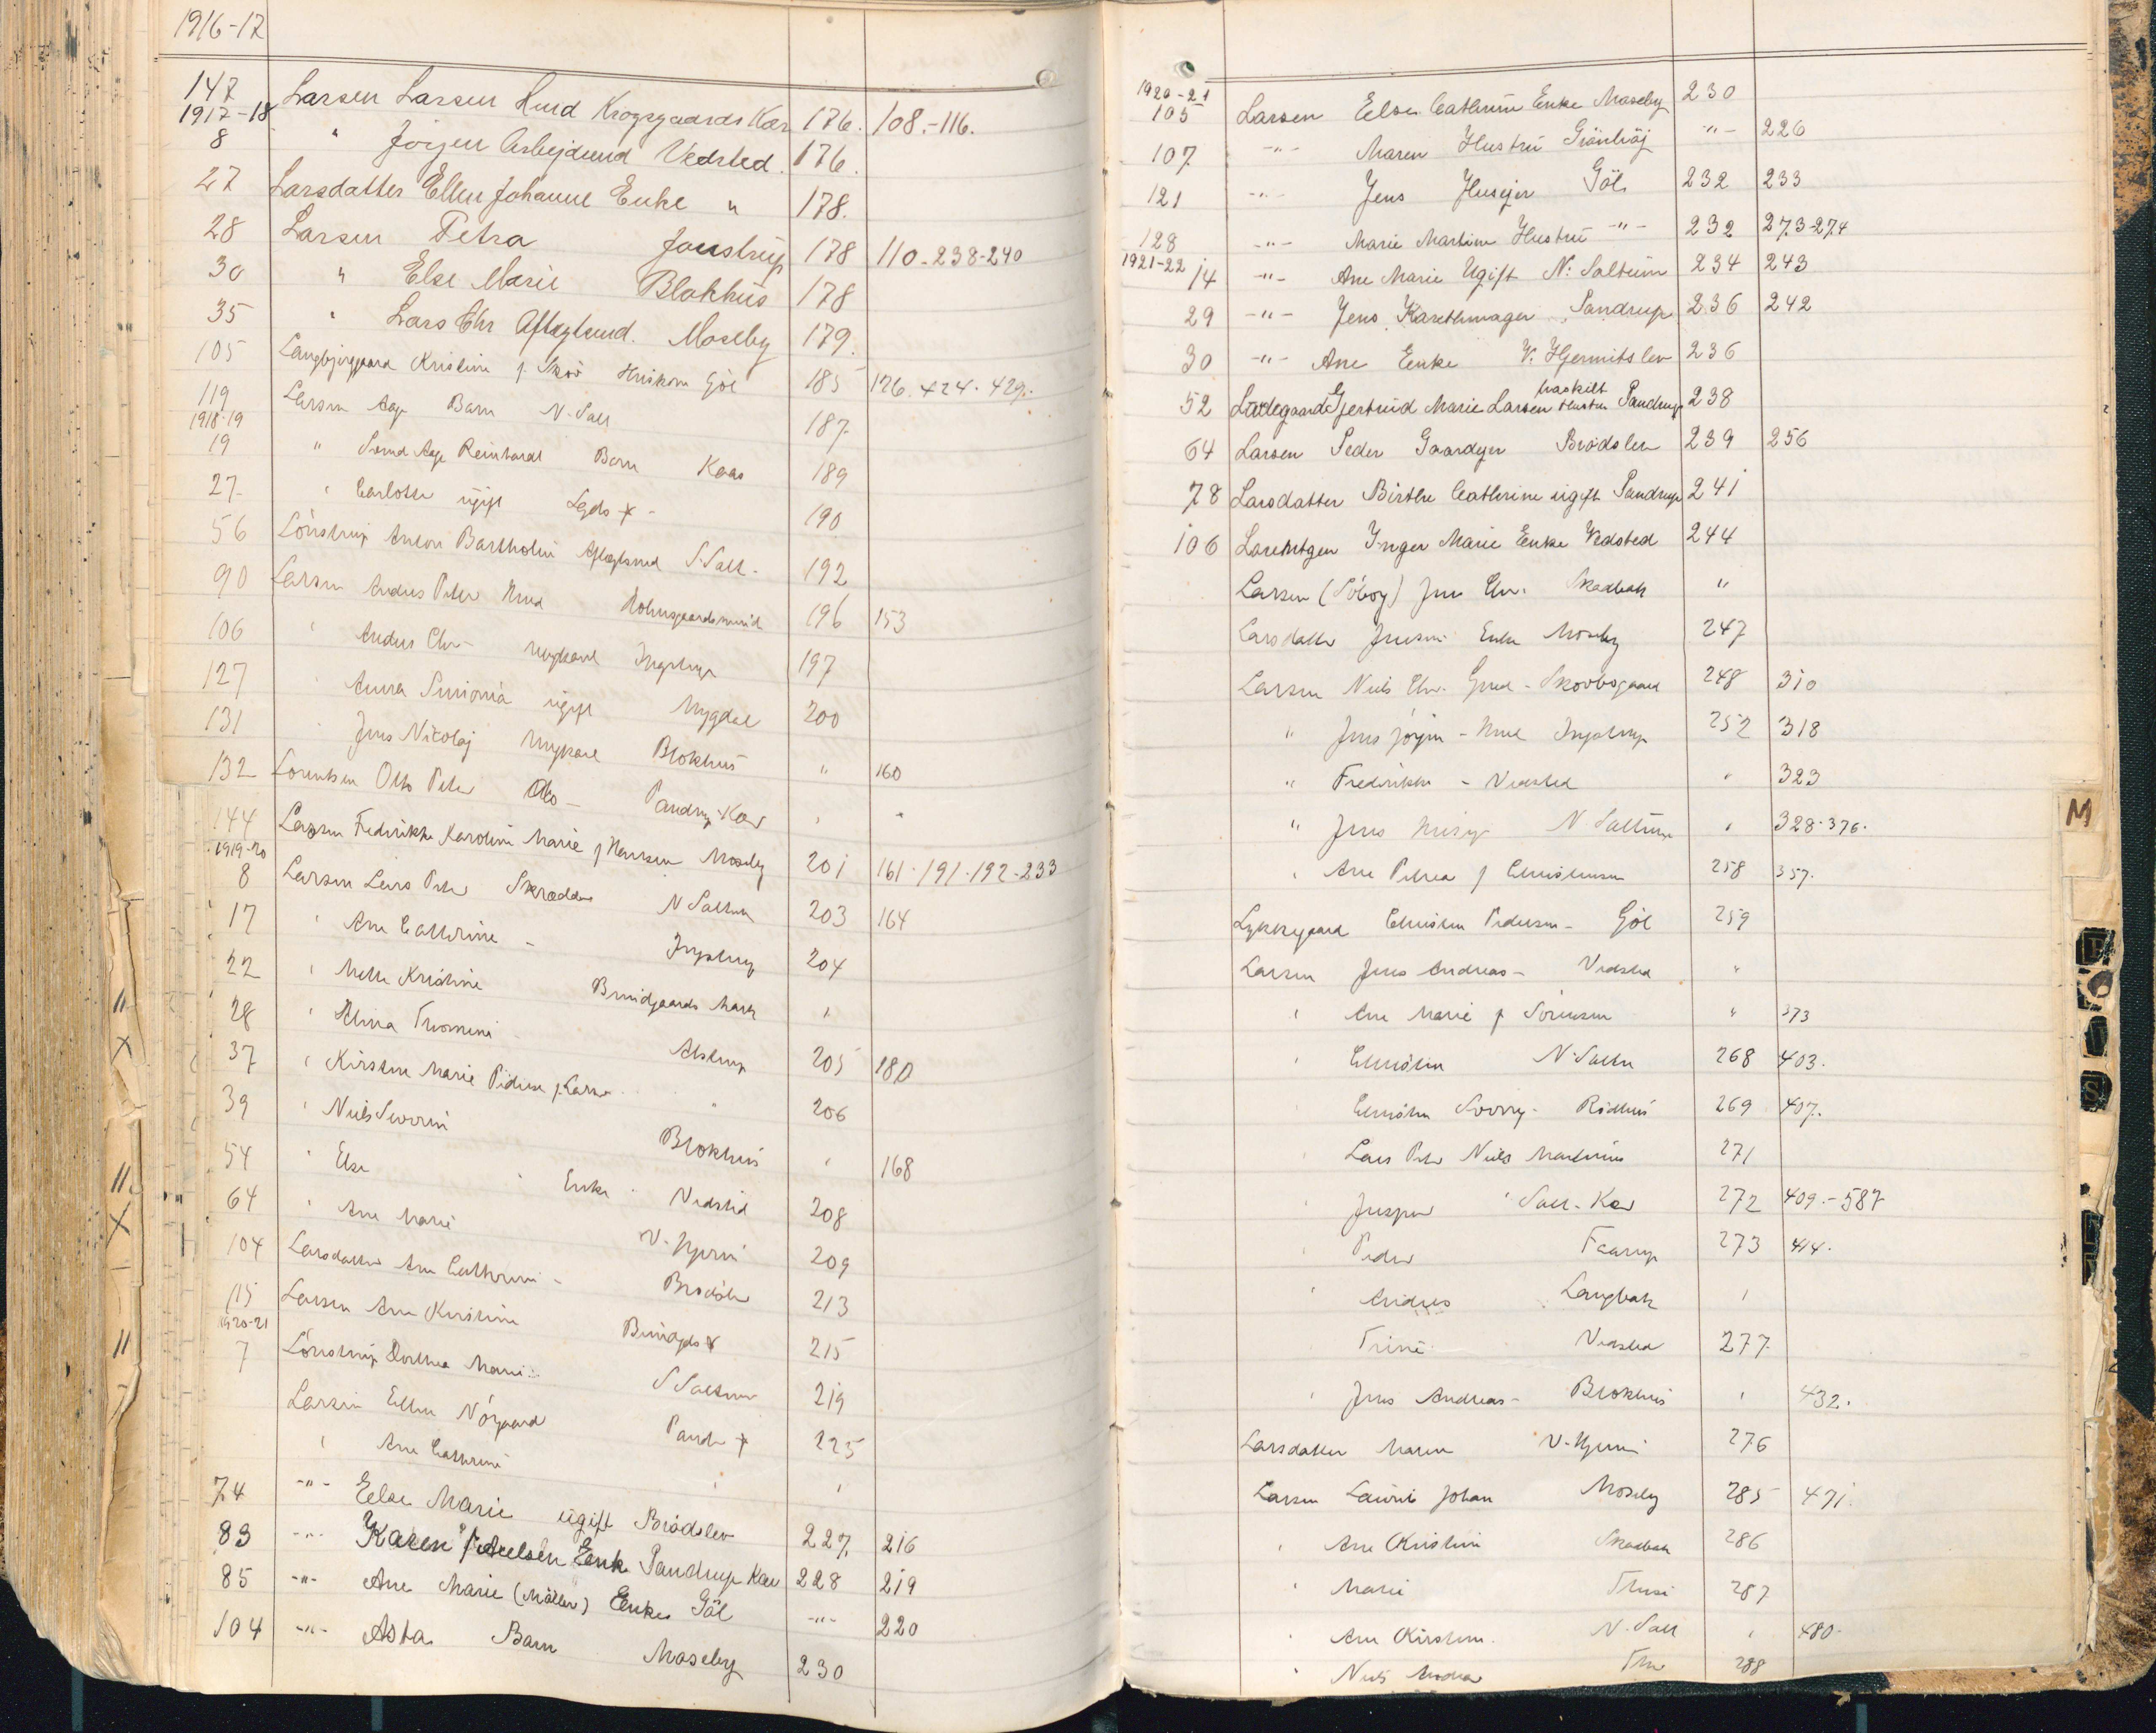 1916-17
147 Larsen Larsen Hmd Krogsgaards Kær 176. 108.-116.
1917-18
8 " Jörgen Arbejdsmd Vedsted. 176.
27 Larsdatter Ellen Johanne Enke " 178.
28 Larsen Petra Jonstrup 178 110-238-240
30 " Else Marie Blokhus 178
35 " Lars Chr Aftægtsmd. Moseby 179.
105 Langbjerggaard Kristine f. Skov Huskone Göl 185 126. 424. 429.
119 Larsen Aage Barn N. Salt 187
1918-19
19 " Svend Aage Reinhardt Barn Kaas 189
27 " Carlotte ugift Lgds 190
56 Lönstrup Anton Bartholin Aftægtsmd S. Salt. 192
90 Larsen Anders Peter Hmd 196 153
106 " Anders Chr- Ungkarl Ingstrup 197
127 " Anna Simonia ugift Mygdal 200
131 " Jens Nicolaj Ungkarl Blokhus " 160
132 Lorentsen Otto Peter Pandrup Kær " "
144 Larsen Fedirikke Karoline Marie f Hansen Moseby 201 161-191-192-233
1919-20
8 Larsen Lars Peter Skrædder N Saltum 203 164
17 " Ane Cathrine - Ingstrup 204
22 " Mette Kristine Brundgaards Mark "
28 " Tromine Alstrup 205 180
37 " Kirstine Marie Pedersen f. Larsen " 206
39 " Niels Severin Blokhus " 168
54 " Else Enke Vedsted 208
64 " Ane Marie V. Hjerm 209
104 Larsdatter Ane Cathrine - Brödslev 213
115 Larsen Ane Kirstine 215
1920-21
7 Lönstrup Dorthea Marie S Saltum 219
Larsen Ellen Nörgaard Pandr 225
" Ane Cathrine " "
74 -"- Else Marie ugift Brödslev 227 216
83 -"- Karen f Axelsen Enk Pandrup Kær 228 219
85 -"- Ane Marie (Möller) Enke Göl -"- 220
104 -"- Asta Barn Moseby 230
1920-21
105 Larsen Else Cathrine Enke Moseby 230
107 -"- Maren Hustru Grönhöj -"- 226
121 -"- Jens Husejer Göl 232 233
128 -"- Marie Martine Hustru -"- 232 273-274
1921-22
14 -"- Ane Marie Ugift N: Saltum 234 243
29 -"- Jens Karethmager Pandrup 236 242
30 -"- Ane Enke V. Hjermitslev 236
fraskilt
52 Gjertrud Marie Larsen Hustru Pandrup 238
64 Larsen Peder Gaardejer Brödslev 239 256
78 Larsdatter Birthe Cathrine ugift Pandrup 241
106 Inger Marie Enke Vedsted 244
Larsen (Söborg) Jens Chr. Skadbæk "
Larsdatter Jensine Enke Moseby 247
Larsen Niels Chr. Gmd - Skovbsgaard 248 310
" Jens Jörgen - Hmd Ingstrup 252 318
" Fredrikke - Vedsted " 323
" Jens Husejer N. Saltum " 328-376.
" Ane Petrea f Christensen 258 357.
Lykkegaard Christen Pedersen - Göl 259
Larsen Jens Andreas - Vedsted "
" Ane Marie f Sörensen " 373
" Christen N. Saltu 268 403.
" Christen Rödhus 269 407.
" Lars Peter Niels Martinus 271
" Jesper Salt. Kær 272 409.-587
" Peder Faarup 273 414.
" Anders Langbak "
Trine Vedsted 277.
" Jens Andreas - Blokhus " 432.
Larsdatter Maren V. Hjerm 276
Larsen Laurits Johan Moseby 285 471.
" Ane Kristine Skadbæk 286
" Marie Thise 287
" Ane Kirstine. N. Salt " 480.
" Niels Andrea 288
M